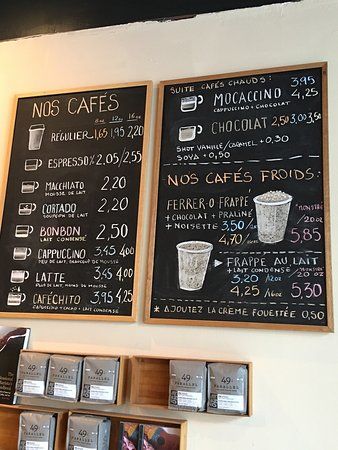 NOS CAFÉS
8oz 12oz 16oz
RÉGULIER 1,65 1,95 2,20
ESPRESSO ½ 2,05/2,55
MACCHIATO 2,20
MOUSSE DE LAIT
CORTADO 2,20
SOUPÇON DE LAIT
BONBON 2,50
LAIT CONDENSÉ
CAPPUCCINO 3,45 4,00
PEU DE LAIT, BEAUCOUP DE MOUSSE
LATTE 3,45 4,00
PLUS DE LAIT, MOINS DE MOUSSE
CAFÉCHITO 3,95 4,25
CAPUCCINO + CACAO + LAIT CONDENSÉ
SUITE CAFÉS CHAUDS:
MOCACCINO 3,95 4,25
CAPPUCCINO + CHOCOLAT
CHOCOLAT 2,50 3,00 3,50
SHOT VANILLE/CARAMEL +0,30
SOYA +0,50
NOS CAFÉS FROIDS:
FERRER-O FRAPPÉ
+ CHOCOLAT + PRALINÉ
+ NOISETTE 3,50/12oz
4,70/16oz
"MONSTRE"
/20oz
5,85
FRAPPE AU LAIT
+ LAIT CONDENSE
3,20 /12oz
4,25 /16oz
"MONSTRE"
20oz
5,30
* AJOUTEZ LA CREME FOUETTÉE 0,50
49
PARALLEL
49
PARALLEL
49
PARALLEL
49
PARALLEL
49
PARALLEL